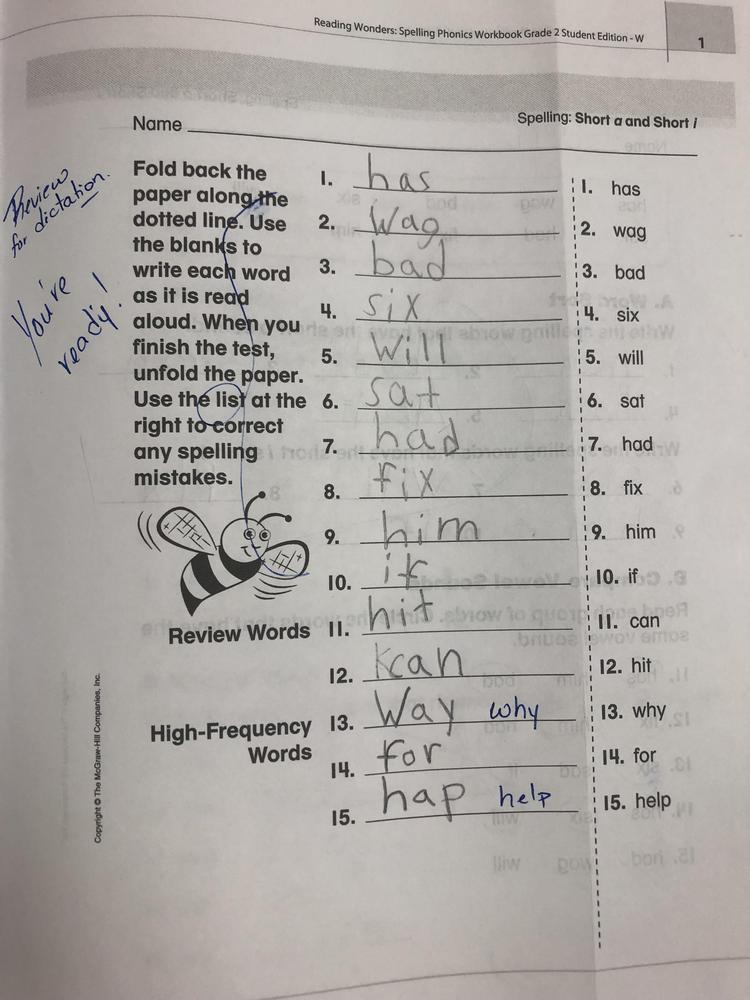 Reading Wonders: Spelling Phonics Workbook Grade 2 Student Edition - W
1
Name
Spelling: Short a and Short i
Review
for dictation.
You're
ready!
Fold back the
paper along the
dotted line. Use
the blanks to
write each word
as it is read
aloud. When you
finish the test,
unfold the paper.
Use the list at the
right to correct
any spelling
mistakes.
1. has
2. Wag
3. bad
4. six
5. Will
6. sat
7. had
8. fix
9. him
10. if
Review Words
11. hit
12. Kcan
High-Frequency
Words
13. Way why
14. for
15. hap help
1. has
2. wag
3. bad
4. six
5. will
6. sat
7. had
8. fix
9. him
10. if
11. can
12. hit
13. why
14. for
15. help
Copyright © The McGraw-Hill Companies, Inc.